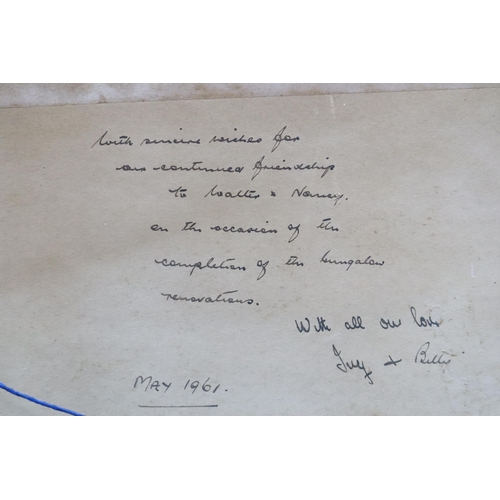 With sincere wishes for
our continued friendship
to Walter & Nancy.
on the occasion of the
completion of the bungalow
renovations.
With all our love
+ Betty
MAY 1961.